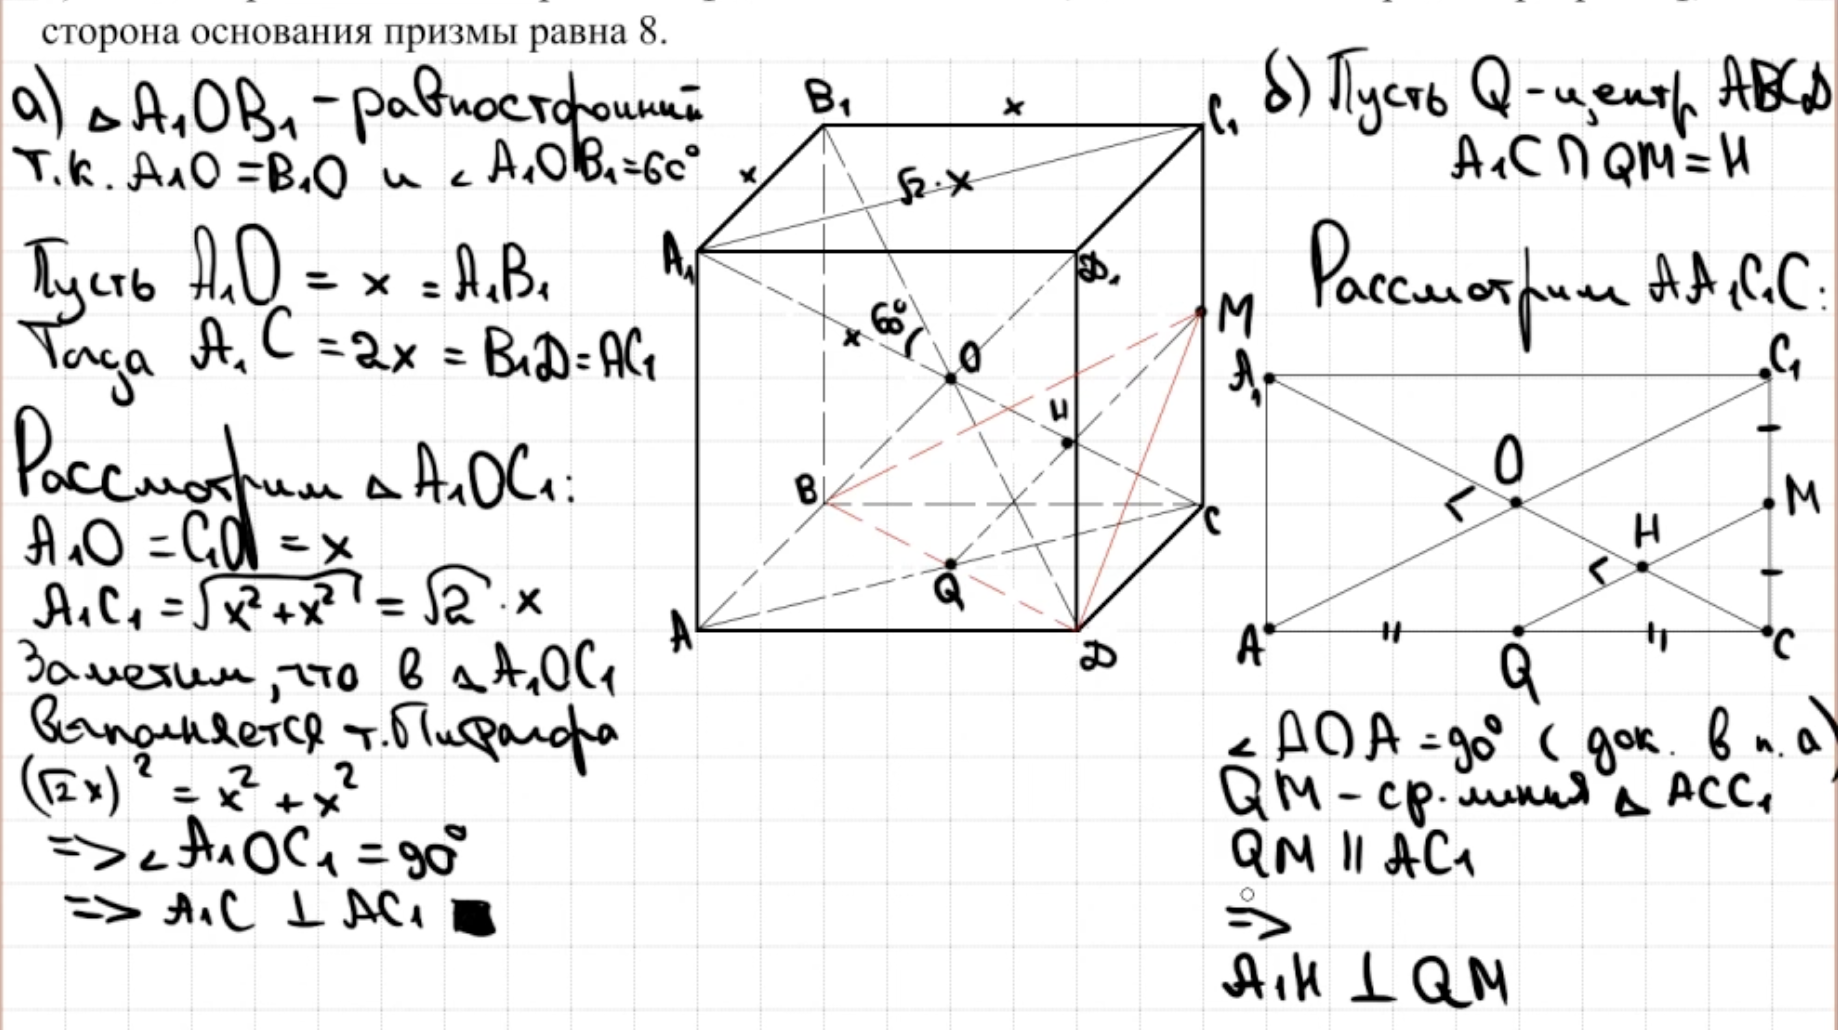 сторона основания призмы равна 8.
а) △ A₁OB₁ - равносторонний
т.к. A₁O = B₁O и ∠ A₁OB₁ = 60°
Пусть A₁O = x = A₁B₁
Тогда A₁C = 2x = B₁D = AC₁
Рассмотрим △ A₁OC₁:
A₁O = C₁O = x
A₁C₁ = √(x² + x²) = √2 · x
Заметим, что в △ A₁OC₁
выполняется т. Пифагора
(√2 x)² = x² + x²
=> ∠ A₁OC₁ = 90°
=> A₁C ⊥ AC₁ ■
B₁
x
C₁
x
√2 · x
A₁
D₁
60°
x
O
M
H
B
C
Q
A
D
б) Пусть Q - центр ABCD
A₁C ∩ QM = H
Рассмотрим AA₁C₁C:
A₁
C₁
O
M
H
A
Q
C
∠ A₁OA = 90° ( док. в п. а)
QM - ср. линия △ ACC₁
QM || AC₁
=>
A₁H ⊥ QM